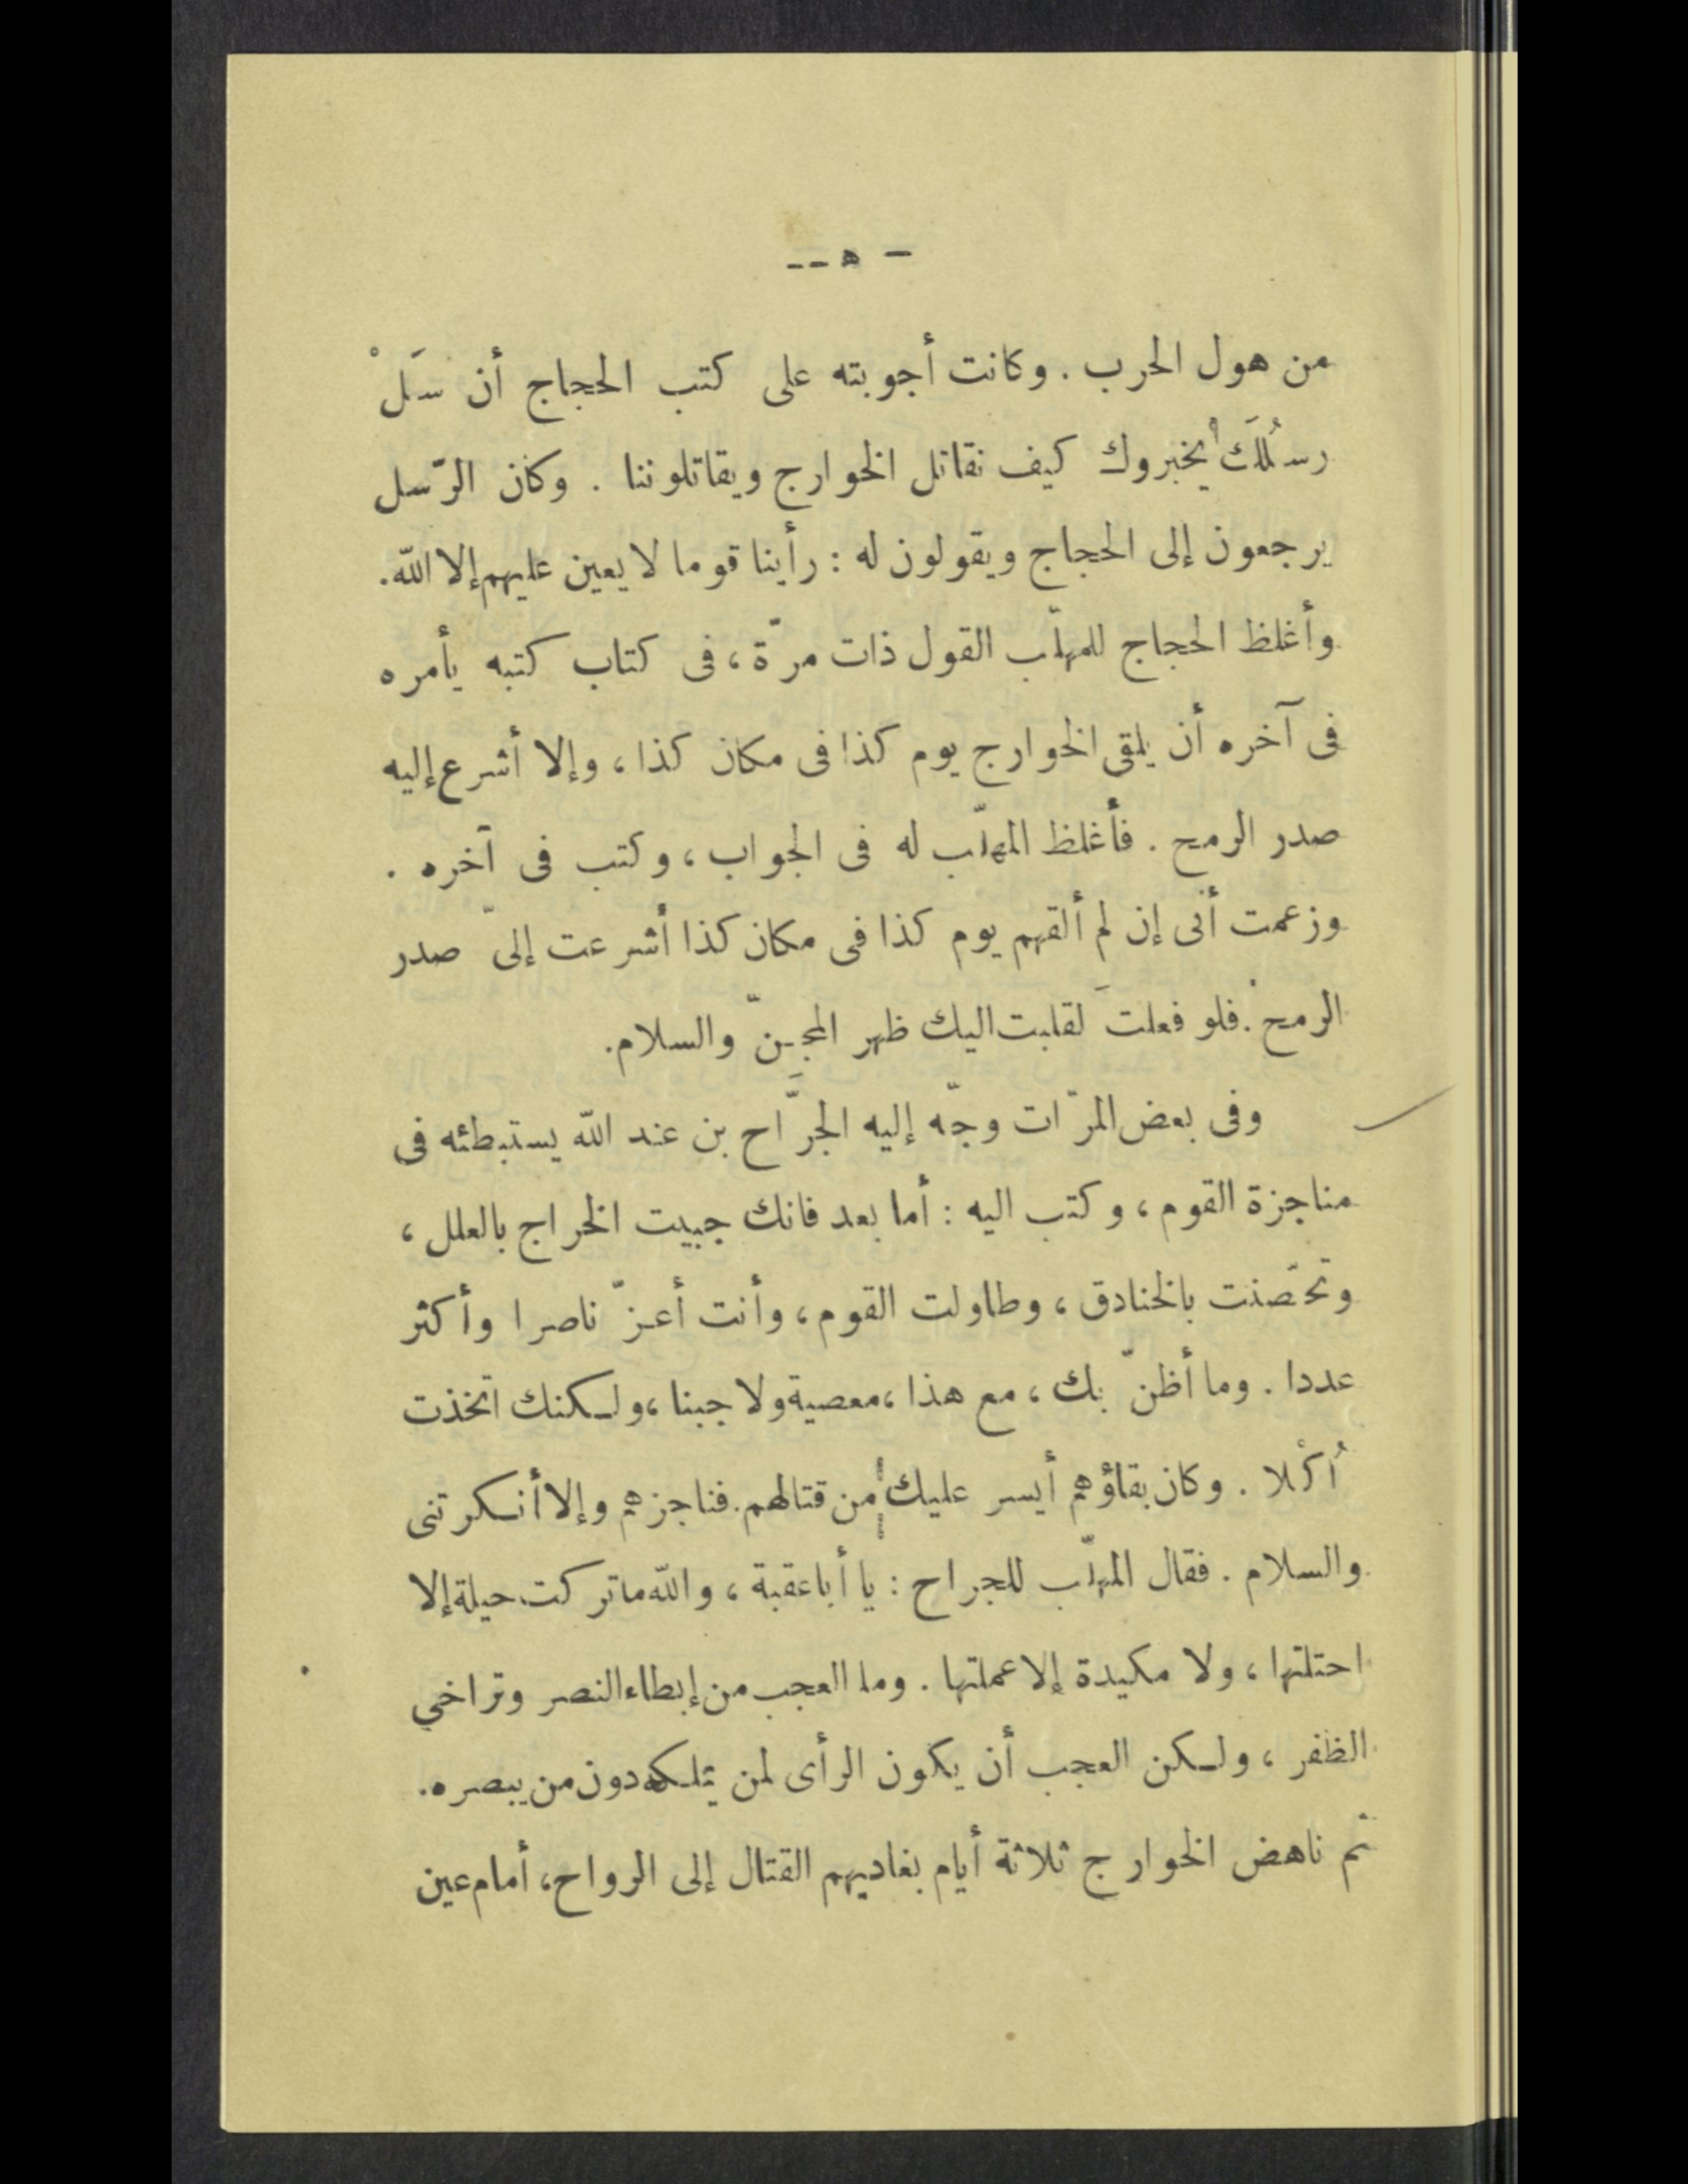 — ٥ —
من هول الحرب . وكانت أجوبته على كتب الحجاج أن سَلْ
رسُلَكَ يخبروك كيف نقاتل الخوارج ويقاتلوننا . وكان الرّسل
يرجعون إلى الحجاج ويقولون له : رأينا قوما لا يعين عليهم إلا الله.
وأغلظ الحجاج للمهلّب القول ذات مرّة ، فى كتاب كتبه يأمره
فى آخره أن يلقى الخوارج يوم كذا فى مكان كذا ، وإلا أشرع إليه
صدر الرمح . فأغلظ المهلّب له فى الجواب ، وكتب فى آخره .
وزعمت أنى إن لم ألقهم يوم كذا فى مكان كذا أشرعت إلىّ صدر
الرمح . فلو فعلتَ لقلبت اليك ظهر المِجَنّ والسلام.
وفى بعض المرّات وجّه إليه الجرَّاح بن عند الله يستبطئه فى
مناجزة القوم ، وكتب اليه : أما بعد فانك جبيت الخراج بالعلل ،
وتحَصّنت بالخنادق ، وطاولت القوم ، وأنت أعزّ ناصرا وأكثر
عددا . وما أظنّ بك ، مع هذا ، معصية ولا جبنا ، ولكنك اتخذت
أُكْلا . وكان بقاؤهم أيسر عليك من قتالهم . فناجزهم وإلا أنكرتنى
والسلام . فقال المهلّب للجراح : يا أبا عقبة ، والله ما تركت حيلة إلا
احتلتها ، ولا مكيدة إلا عملتها . وما العجب من إبطاء النصر وتراخي
الظفر ، ولكن العجب أن يكون الرأى لمن يملكه دون من يبصره.
ثم ناهض الخوارج ثلاثة أيام يغاديهم القتال إلى الرواح ، أمام عين